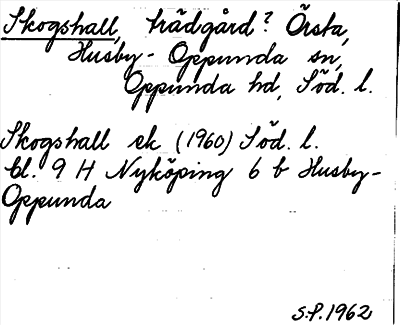 Skogshall, trädgård? Örsta,
Husby-Oppunda sn,
Oppunda hd, Söd. l.
Skogshall ek (1960) Söd. l.
bl. 9 H Nyköping 6 b Husby-
Oppunda
S.P. 1962